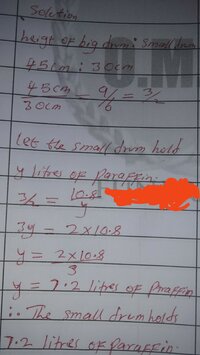 Solution
heigt of big drum : small drum
45cm : 30cm
45cm/30cm = 9/6 = 3/2
let the small drum hold
y litres of paraffin.
3/2 = 10.8/y
3y = 2x10.8
y = 2x10.8/3
y = 7.2 litres of Praffin
∴ The small drum holds
7.2 litres of paraffin.